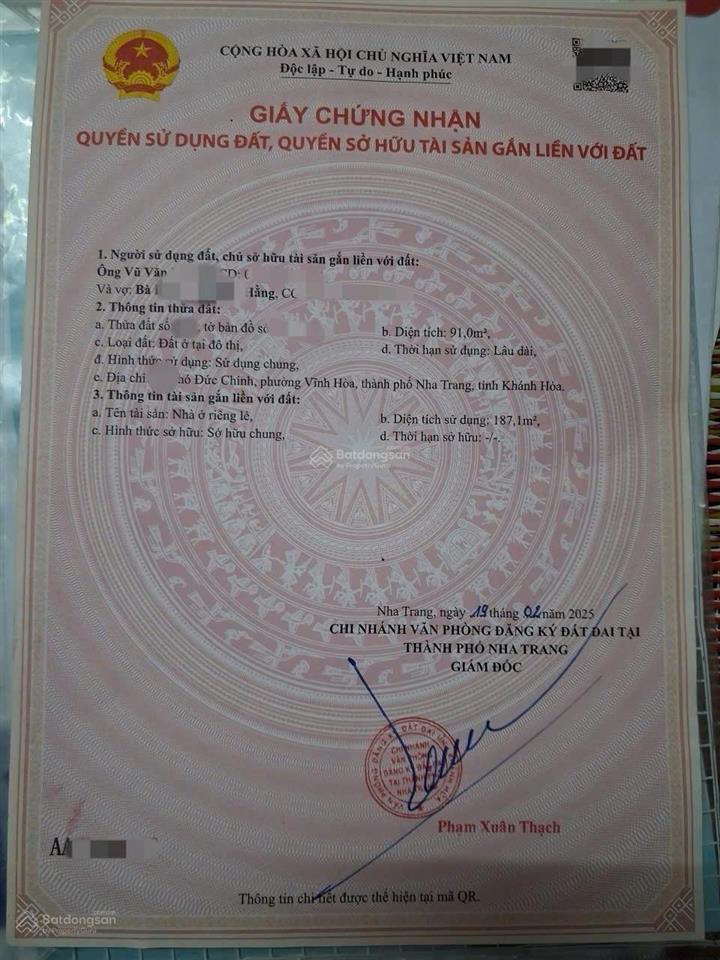 CỘNG HÒA XÃ HỘI CHỦ NGHĨA VIỆT NAM
Độc lập - Tự do - Hạnh phúc
GIẤY CHỨNG NHẬN
QUYỀN SỬ DỤNG ĐẤT, QUYỀN SỞ HỮU TÀI SẢN GẮN LIỀN VỚI ĐẤT
1. Người sử dụng đất, chủ sở hữu tài sản gắn liền với đất:
Ông Vũ Văn
Và vợ: Bà Hằng,
2. Thông tin thửa đất:
a. Thửa đất số , tờ bản đồ số b. Diện tích: 91,0m²,
c. Loại đất: Đất ở tại đô thị, d. Thời hạn sử dụng: Lâu dài,
đ. Hình thức sử dụng: Sử dụng chung,
e. Địa chỉ Đức Chính, phường Vĩnh Hòa, thành phố Nha Trang, tỉnh Khánh Hòa.
3. Thông tin tài sản gắn liền với đất:
a. Tên tài sản: Nhà ở riêng lẻ, b. Diện tích sử dụng: 187,1m²,
c. Hình thức sở hữu: Sở hữu chung, d. Thời hạn sở hữu: -/-.
Batdongsan
by PropertyGuru
Nha Trang, ngày 19 tháng 02 năm 2025
CHI NHÁNH VĂN PHÒNG ĐĂNG KÝ ĐẤT ĐAI TẠI
THÀNH PHỐ NHA TRANG
GIÁM ĐỐC
CHI NHÁNH
VĂN PHÒNG
Phạm Xuân Thạch
AA
Thông tin chi tiết được thể hiện tại mã QR.
Batdongsan
by PropertyGuru